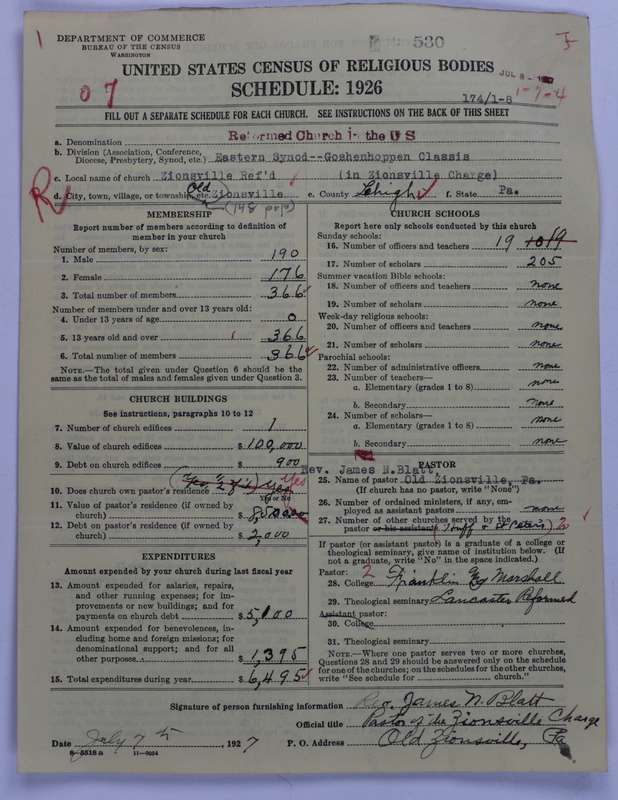 DEPARTMENT OF COMMERCE
BUREAU OF THE CENSUS
WASHINGTON
530
UNITED STATES CENSUS OF RELIGIOUS BODIES
JUL 8 - 1927
SCHEDULE: 1926
0 7
174/1-8
1-7-4
FILL OUT A SEPARATE SCHEDULE FOR EACH CHURCH. SEE INSTRUCTIONS ON THE BACK OF THIS SHEET
a. Denomination Reformed Church in the U S
b. Division (Association, Conference, Diocese, Presbytery, Synod, etc.) Eastern Synod--Goshenhoppen Classis
c. Local name of church Zionsville Ref'd (in Zionsville Charge)
d. City, town, village, or township, etc. Old Zionsville e. County Lehigh f. State Pa.
(148 pop)
R
MEMBERSHIP
Report number of members according to definition of member in your church
Number of members, by sex:
1. Male 190
2. Female 176
3. Total number of members 366
Number of members under and over 13 years old:
4. Under 13 years of age 0
5. 13 years old and over 366
6. Total number of members 366
NOTE.—The total given under Question 6 should be the same as the total of males and females given under Question 3.
CHURCH BUILDINGS
See instructions, paragraphs 10 to 12
7. Number of church edifices 1
8. Value of church edifices $ 100,000
9. Debt on church edifices $ 900
10. Does church own pastor's residence Yes
Yes or No
11. Value of pastor's residence (if owned by church) $ 8,500.00
12. Debt on pastor's residence (if owned by church) $ 2,000
EXPENDITURES
Amount expended by your church during last fiscal year
13. Amount expended for salaries, repairs, and other running expenses; for improvements or new buildings; and for payments on church debt $ 5,100
14. Amount expended for benevolences, including home and foreign missions; for denominational support; and for all other purposes $ 1,395
15. Total expenditures during year $ 6,495
CHURCH SCHOOLS
Report here only schools conducted by this church
Sunday schools:
16. Number of officers and teachers 19
17. Number of scholars 205
Summer vacation Bible schools:
18. Number of officers and teachers none
19. Number of scholars none
Week-day religious schools:
20. Number of officers and teachers none
21. Number of scholars none
Parochial schools:
22. Number of administrative officers none
23. Number of teachers—
a. Elementary (grades 1 to 8) none
b. Secondary none
24. Number of scholars—
a. Elementary (grades 1 to 8) none
b. Secondary none
PASTOR
Rev. James N. Blatt,
25. Name of pastor Old Zionsville, Pa.
(If church has no pastor, write "None")
26. Number of ordained ministers, if any, employed as assistant pastors none
27. Number of other churches served by the pastor or his assistants (Huff & St Peters) 2
If pastor (or assistant pastor) is a graduate of a college or theological seminary, give name of institution below. (If not a graduate, write "No" in the space indicated.)
Pastor: 2
28. College Franklin & Marshall
29. Theological seminary Lancaster Reformed
Assistant pastor:
30. College
31. Theological seminary
NOTE.—Where one pastor serves two or more churches, Questions 28 and 29 should be answered only on the schedule for one of the churches; on the schedules for the other churches, write "See schedule for church."
Signature of person furnishing information Rev. James N. Blatt
Official title Pastor of the Zionsville Charge
Date July 7th, 1927 P. O. Address Old Zionsville, Pa
8-5518 a 11-9024